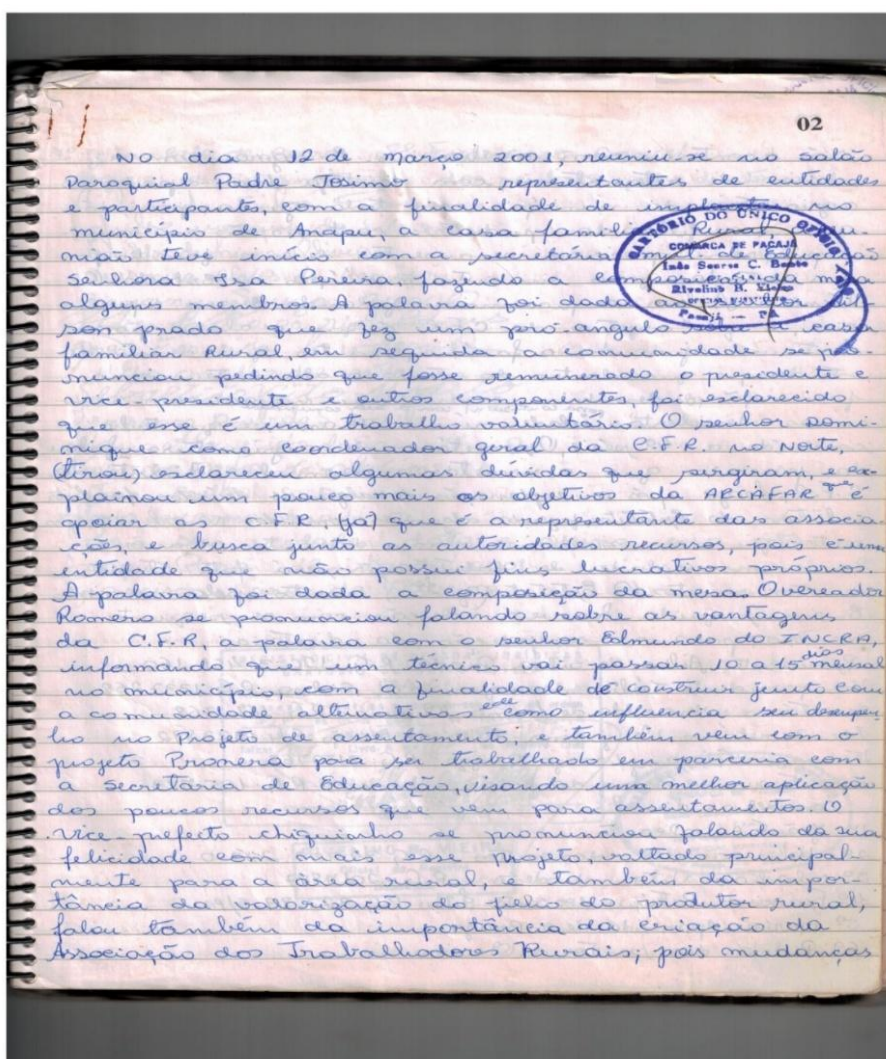 02
No dia 12 de março 2001, reuniu-se no salão
Paroquial Padre Josimo representantes de entidades
e participantes, com a finalidade de implantar no
município de Anapu, a casa familiar Rural,
CARTÓRIO DO ÚNICO OFÍCIO
COMARCA DE PACAJÁ
Inês Soares C. Bento
Pacajá — PA
nião teve início com a secretária de Educação
Senhora Isa Pereira, fazendo a
alguns membros. A palavra foi dada
son prado que fez um pró-angulo sobre a casa
familiar Rural, em seguida a comunidade se pro-
nunciou pedindo que fosse remunerado o presidente e
vice-presidente e outros componentes, foi esclarecido
que esse é um trabalho voluntário. O senhor Domi-
nique como coordenador geral da C.F.R. no Norte,
(tirou) esclareceu algumas dúvidas que surgiram, e ex-
plainou um pouco mais os objetivos da ARCAFAR que é
apoiar as C.F.R, (já) que é a representante das associa-
ções, e busca junto as autoridades recursos, pois é uma
entidade que não possui fins lucrativos próprios.
A palavra foi dada a composição da mesa. O vereador
Romero se pronunciou falando sobre as vantagens
da C.F.R, a palavra com o senhor Edmundo do INCRA,
informando que um técnico vai passar 10 a 15 dias mensal
no município, com a finalidade de construir junto com
a comunidade alternativas como influencia seu desempe-
nho no Projeto de assentamento; e também vem com o
projeto Pronera para ser trabalhado em parceria com
a secretária de Educação, visando uma melhor aplicação
dos poucos recursos que vem para assentamentos. O
vice-prefeito chiquinho se pronunciou falando da sua
felicidade com mais esse projeto, voltado principal-
mente para a área rural, e também da impor-
tância da valorização do filho do produtor rural,
falou também da importância da criação da
Associação dos Trabalhadores Rurais; pois mudanças